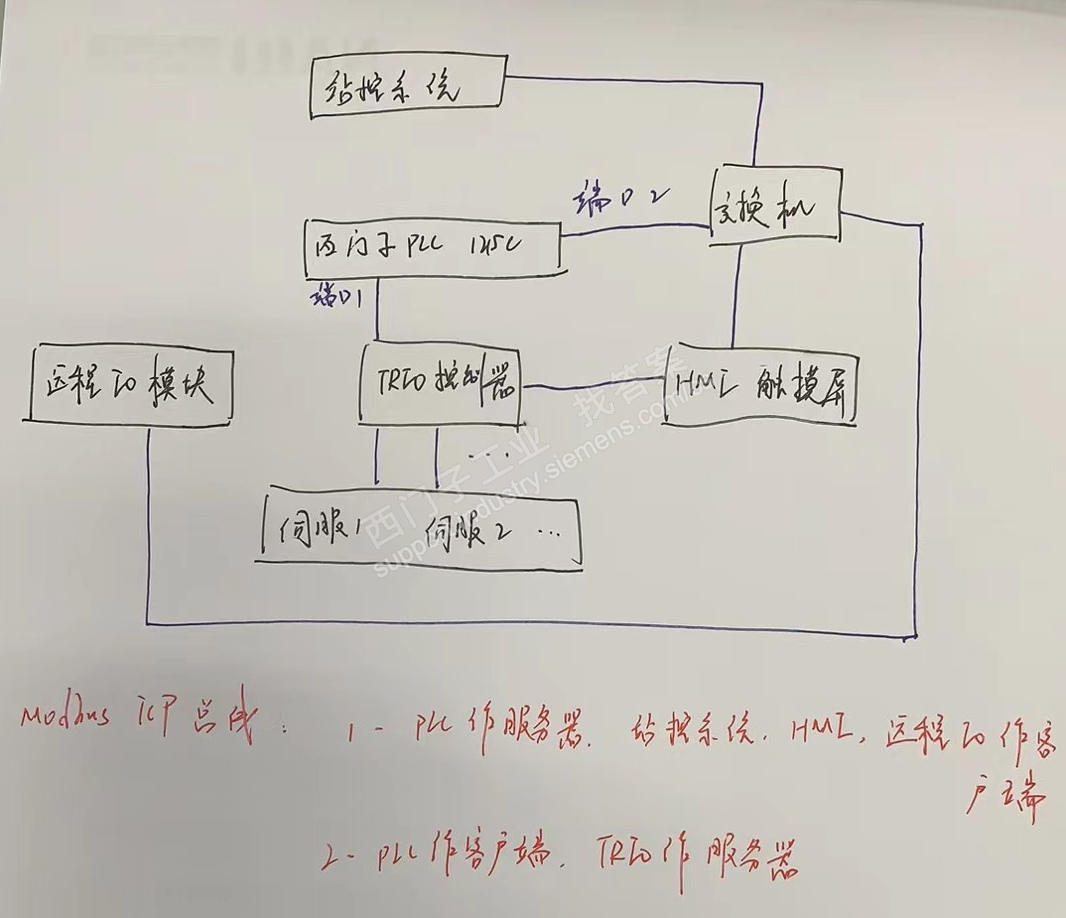 站控系统
端口2
交换机
西门子PLC 1215C
端口1
远程IO模块
TRIO控制器
HMI 触摸屏
...
伺服1 伺服2 ...
西门子工业 找答案
support.industry.siemens.com
Modbus TCP总线: 1- PLC作服务器. 站控系统. HMI, 远程IO作客
户端
2- PLC作客户端. TRIO作服务器